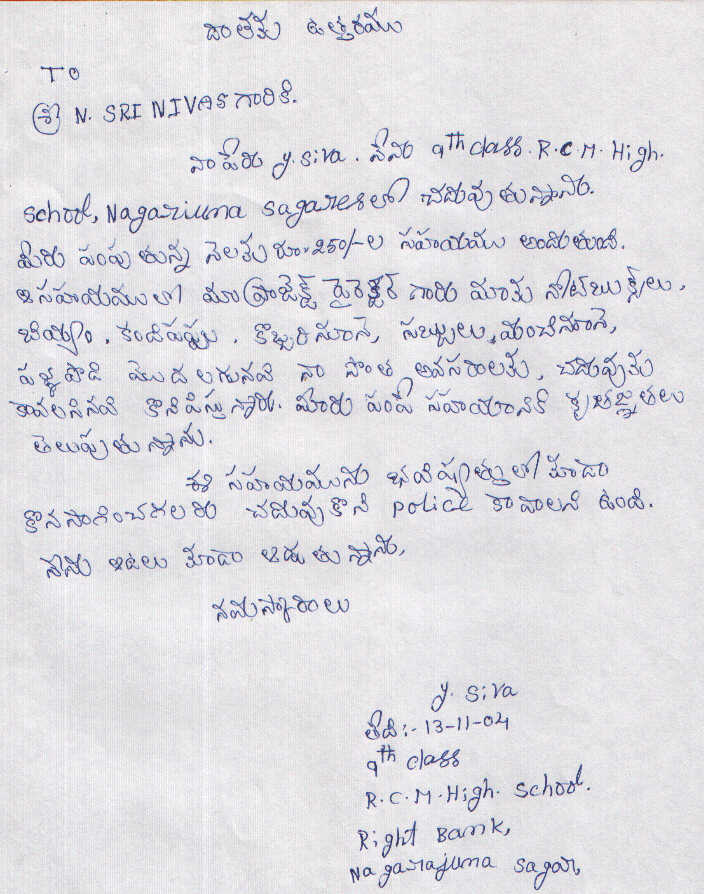 దాతకు ఉత్తరము
TO
శ్రీ N. SRINIVAS గారికి.
నా పేరు Y. Siva. నేను 9th class. R.C.M. High.
School, Nagarjuna Sagarలో చదువుతున్నాను.
మీరు పంపుతున్న నెలకు రూ. 250/-ల సహాయము అందుతుంది.
ఆ సహాయములో మా ప్రాజెక్ట్ డైరెక్టర్ గారు మాకు నోట్‌బుక్స్‌లు,
బియ్యం, కందిపప్పు, కొబ్బరినూనె, సబ్బులు, మంచినూనె,
పళ్ళపొడి మొదలగునవి నా సొంత అవసరాలకు, చదువుకు
కావలసినవి కొనిపిస్తున్నారు. మీరు పంపే సహాయానికి కృతజ్ఞతలు
తెలుపుతున్నాను.
ఈ సహాయమును భవిష్యత్తులో కూడా
కొనసాగించగలరు చదువుకొని police కావాలని ఉంది.
నేను ఆటలు కూడా ఆడుతున్నాను,
నమస్కారాలు
Y. Siva
తేది:- 13-11-04
9th class
R.C.M. High. School.
Right Bank,
Nagarajuna Sagar,